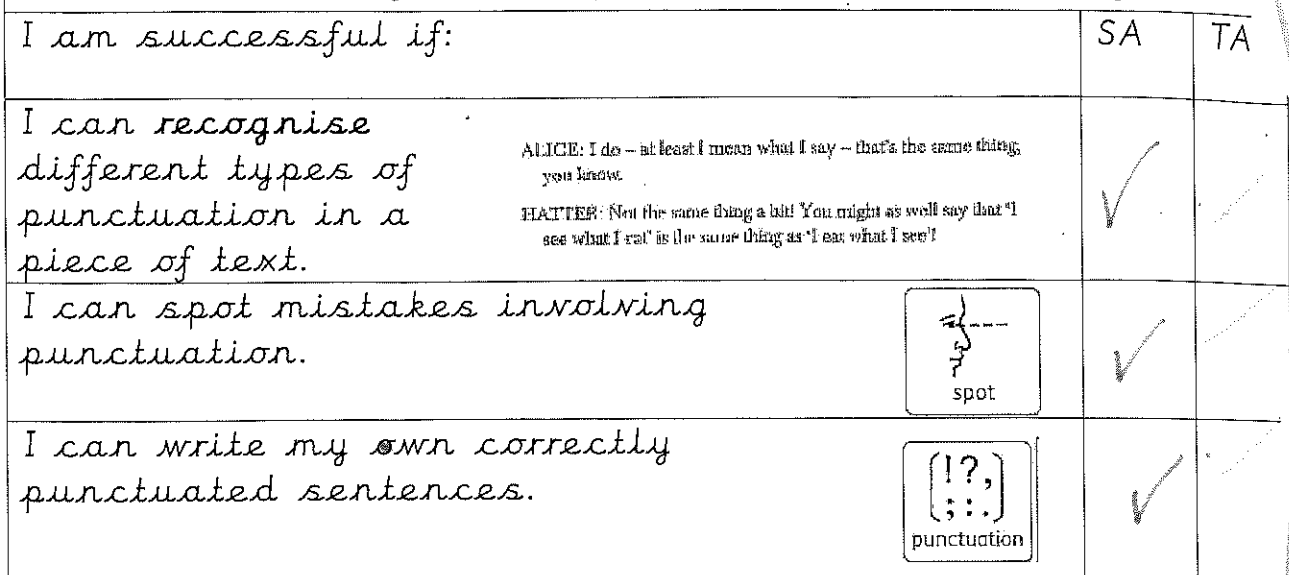 I am successful if:
SA
TA
I can recognise
different types of
punctuation in a
piece of text.
ALICE: I do – at least I mean what I say – that's the same thing,
you know.
HATTER: Not the same thing a bit! You might as well say that "I
see what I eat" is the same thing as "I eat what I see"!
I can spot mistakes involving
punctuation.
spot
I can write my own correctly
punctuated sentences.
(!?,
;:.)
punctuation